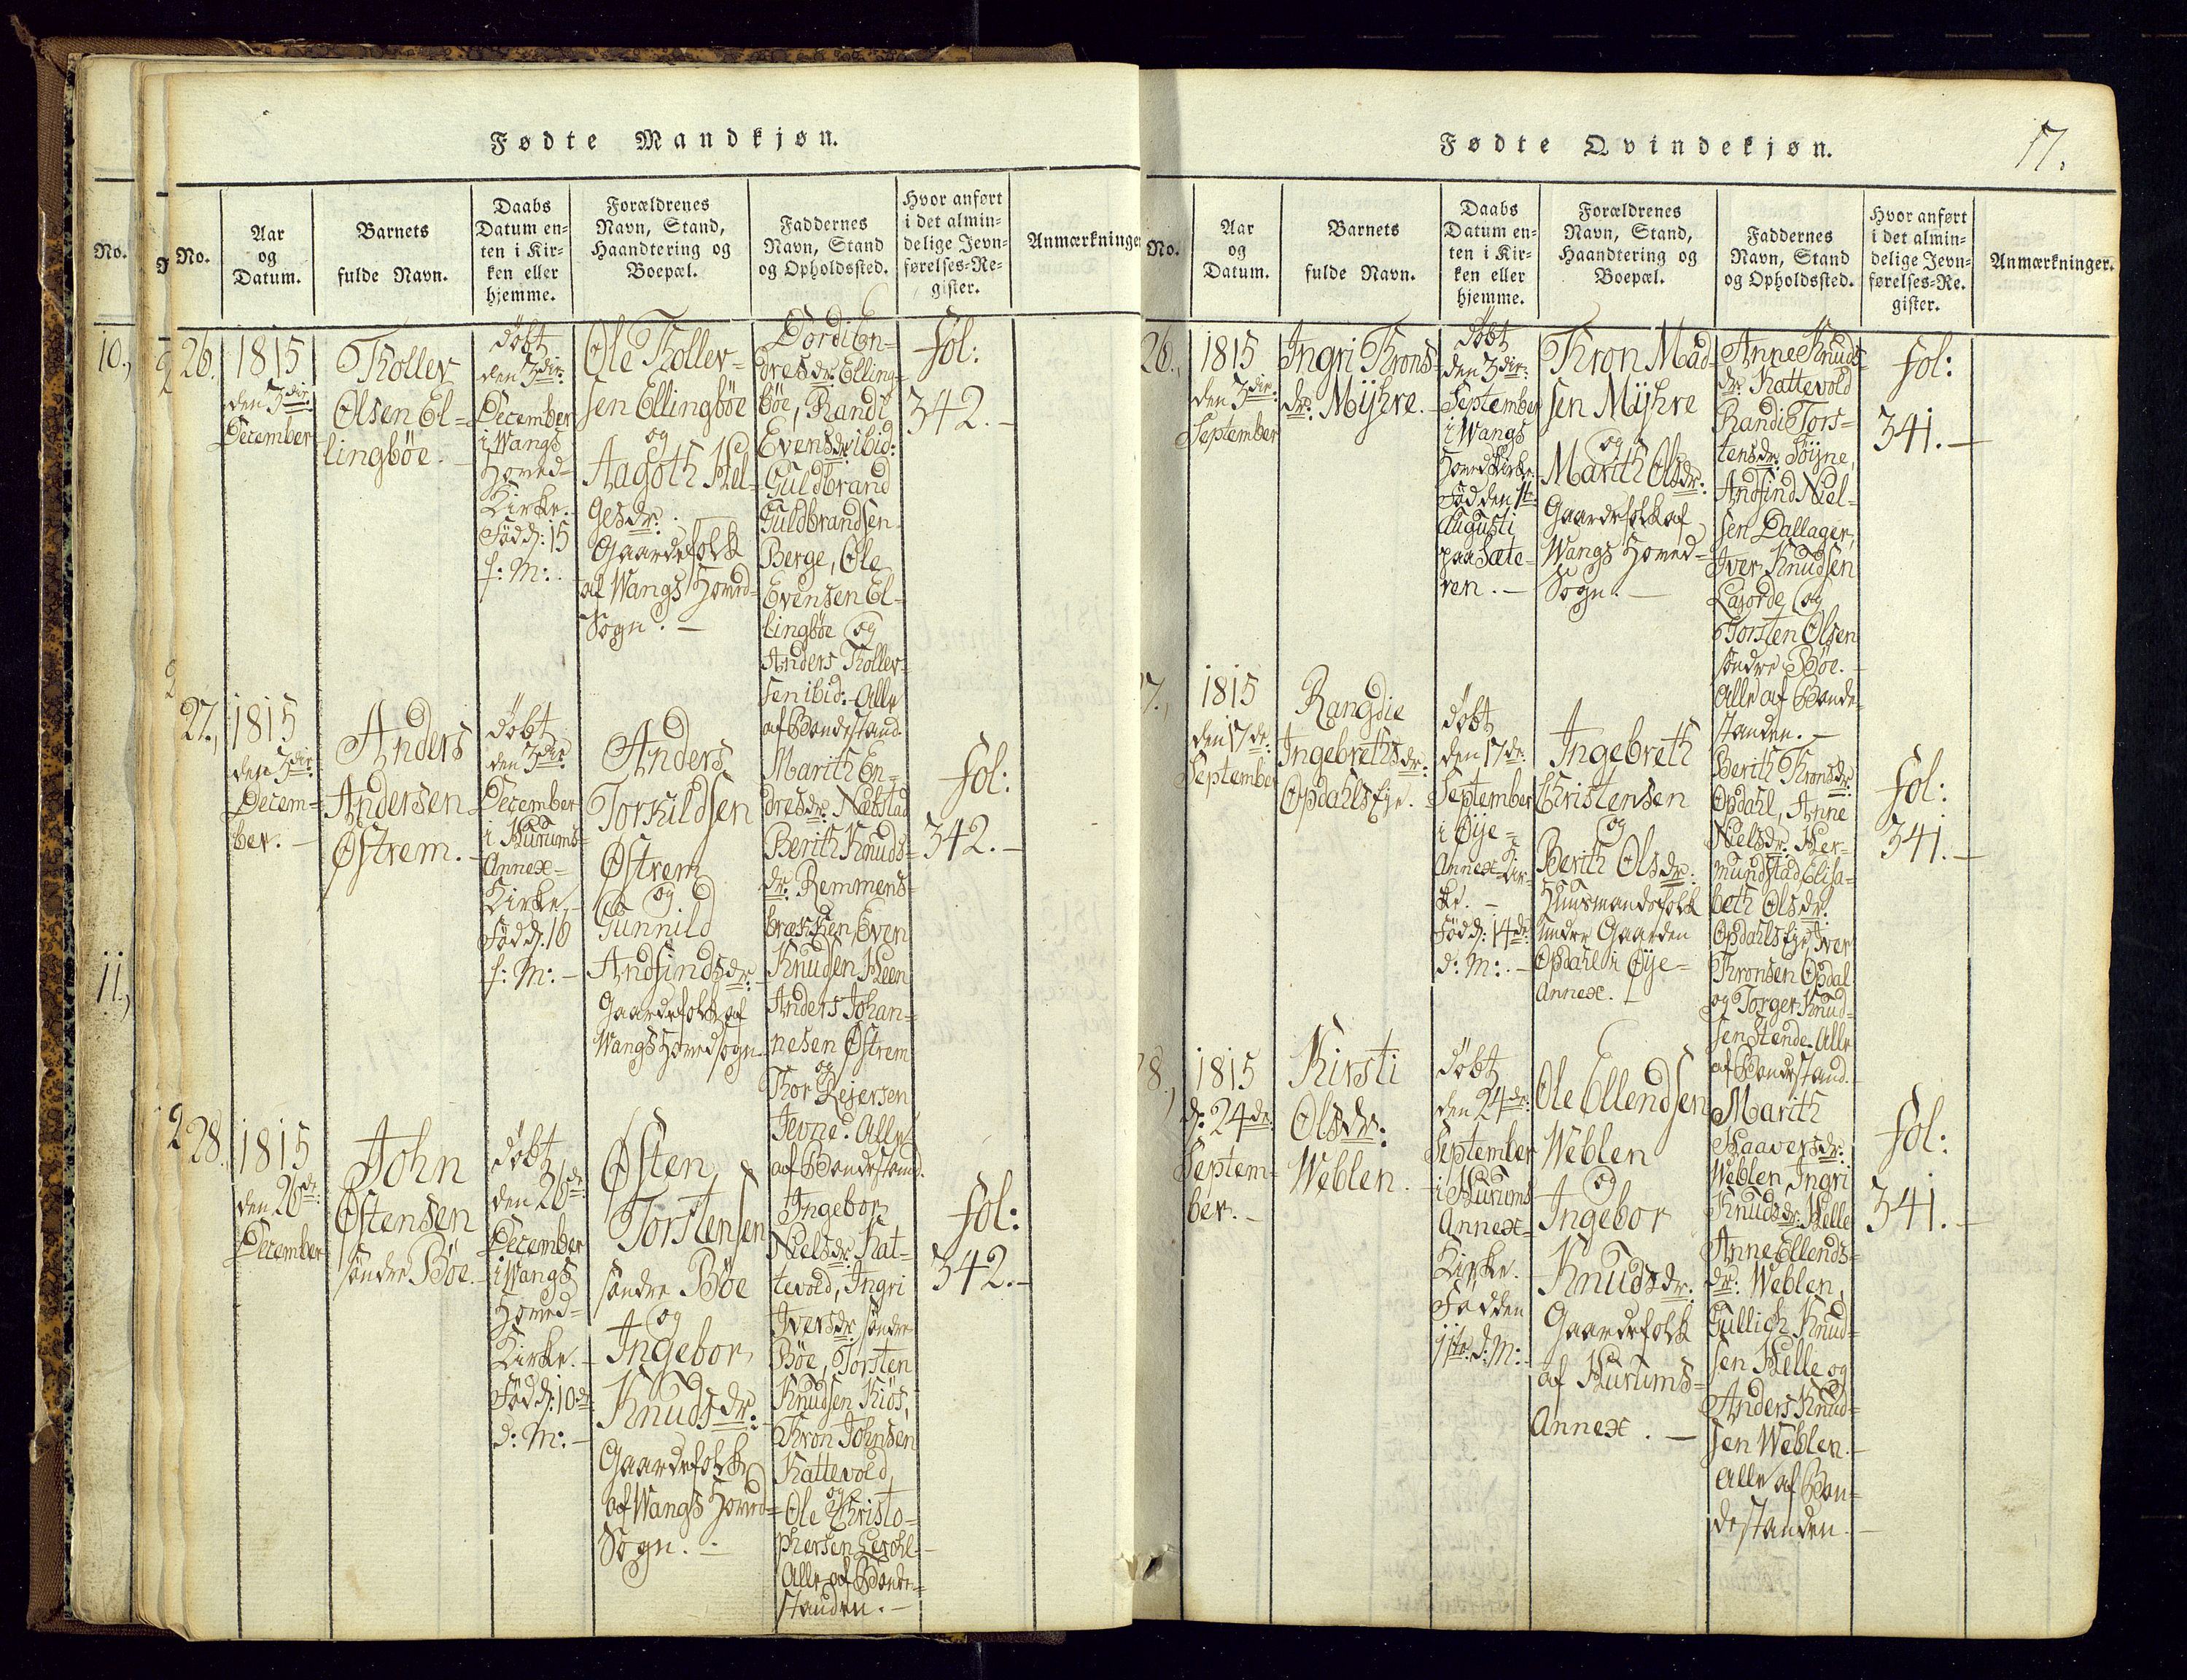 Fødte Mandkjøn.
No.
No.
Aar
og
Datum.
Barnets
fulde Navn.
Daabs
Datum en-
ten i Kir-
ken eller
hjemme.
Forældrenes
Navn, Stand,
Haandtering og
Boepæl.
Faddernes
Navn, Stand
og Opholdssted.
Hvor anført
i det almin-
delige Jevn-
førelses-Re-
gister.
Anmærkninger
10.,
11.,
26.
1815
den 3die:
December
Tholler
Olsen El-
lingböe.
döbt
den 3die:
December
i Wangs
Hoved-
Kirke.
Föd d: 15
f: M:
Ole Tholler-
sen Ellingböe
og
Aagoth Hel-
gesdr:
Gaardefolk
af Wangs Hoved-
Sogn. –
Dordi En-
dresdr: Elling-
böe, Randi
Evensdr: ibid:
Guldbrand
Guldbrandsen
Berge, Ole
Evensen El-
lingböe og
Anders Tholler-
sen ibid:- Alle
af Bondestand.
fol:
342. –
27.,
1815
den 3die:
Decem-
ber. –
Anders
Andersen
Østrem. –
döbt
den 3die:
December
i Hurums-
Annex-
Kirke.
Föd d: 16
f: M: –
Anders
Torkildsen
Østrem
og
Gunnild
Andfindsdr:
Gaardefolk af
Wangs Hovedsogn.
Marith En-
dresdr: Næbstad
Berith Knuds-
dr: Remmens-
brækken, Even
Knudsen Heen
Anders Johan-
nesen Østrem
og
Thor Rejersen
Jevne. Alle
af Bondestand.
fol:
342. –
28.
1815
den 26de:
December
John
Østensen
söndre Böe. –
döbt
den 26de:
December
i Wangs
Hoved-
Kirke. –
Föd d: 10de
d: M: –
Østen
Torstensen
söndre Böe
og
Ingebor
Knudsdr:
Gaardefolk
af Wangs Hoved-
Sogn. –
Ingebor
Nielsdr: Kat-
tevold, Ingri
Iversdr: söndre
Böe, Torsten
Knudsen Kiös,
Thron Johnsen
Kattevold
og
Ole Christo-
phersen
Alle af Bonde-
standen. –
fol:
342. –
Fødte Qvindekjøn.
17.
No.
Aar
og
Datum.
Barnets
fulde Navn.
Daabs
Datum en-
ten i Kir-
ken eller
hjemme.
Forældrenes
Navn, Stand,
Haandtering og
Boepæl.
Faddernes
Navn, Stand
og Opholdssted.
Hvor anført
i det almin-
delige Jevn-
førelses-Re-
gister.
Anmærkninger.
26.,
1815
den 3die:
September
Ingri Throns-
dr: Mÿhre. –
döbt
den 3die:
September
i Wangs
Hovedkirke
Föd den 1te
Augusti
paa Sæte-
ren. –
Thron Mad-
sen Mÿhre
og
Marith Olsdr:
Gaardefolk af
Wangs Hoved-
Sogn. –
Anne Knuds-
dr: Kattevold
Randi Tors-
tensdr: Söÿne,
Andfind Niel-
sen Dallager,
Iver Knudsen
og
Torsten Olsen
söndre Böe.
Alle af Bonde-
standen. –
fol:
341. –
7.,
1815
den 17de:
September
Rangdie
Ingebrethsdr:
Opdahlseÿe.
döbt
den 17de:
September
i Øÿe-
Annex-Kir-
ke. –
Föd d: 14de
d: M: –
Ingebreth
Christensen
og
Berith Olsdr:
Huusmandsfolk
under Gaarden
Opdahl i Øÿe-
Annex.
Berith Thronsdr:
Opdahl, Anne
Nielsdr: Her-
mundstad, Elisa-
beth Olsdr:
Opdahlseÿe, Iver
Thronsen Opdal
og Torger Knud-
sen Stende. Alle
af Bondestand. –
fol:
341. –
8.,
1815
d: 24de:
Septem-
ber. –
Kirsti
Olsdr:
Weblen. –
döbt
den 24de:
September
i Hurums
Annex-
Kirke.
Föd den
11te: d: M:
Ole Ellendsen
Weblen
og
Ingebor
Knudsdr:
Gaardefolk
af Hurums-
Annex. –
Marith
Haaversdr:
Weblen, Ingri
Knudsdr: Helle
Anne Ellends-
dr: Weblen,
Gullich Knud-
sen Helle og
Anders Knud-
sen Weblen. –
Alle af Bon-
destanden. –
fol:
341. –